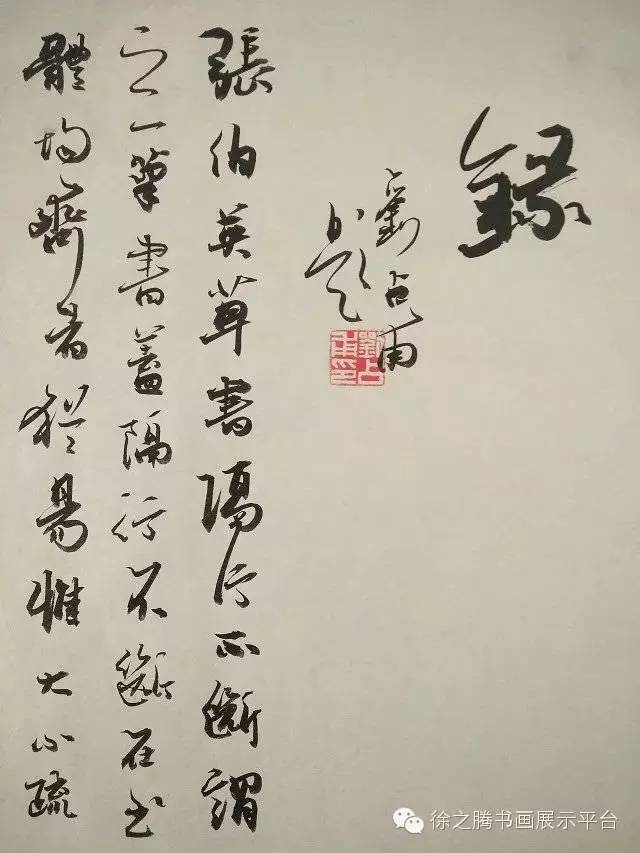 錄
劉占甫
題
劉占甫印
張伯英草書隔行不斷謂
之一筆書蓋隔行不斷在書
體均齊者猶易惟大小疏
徐之腾书画展示平台